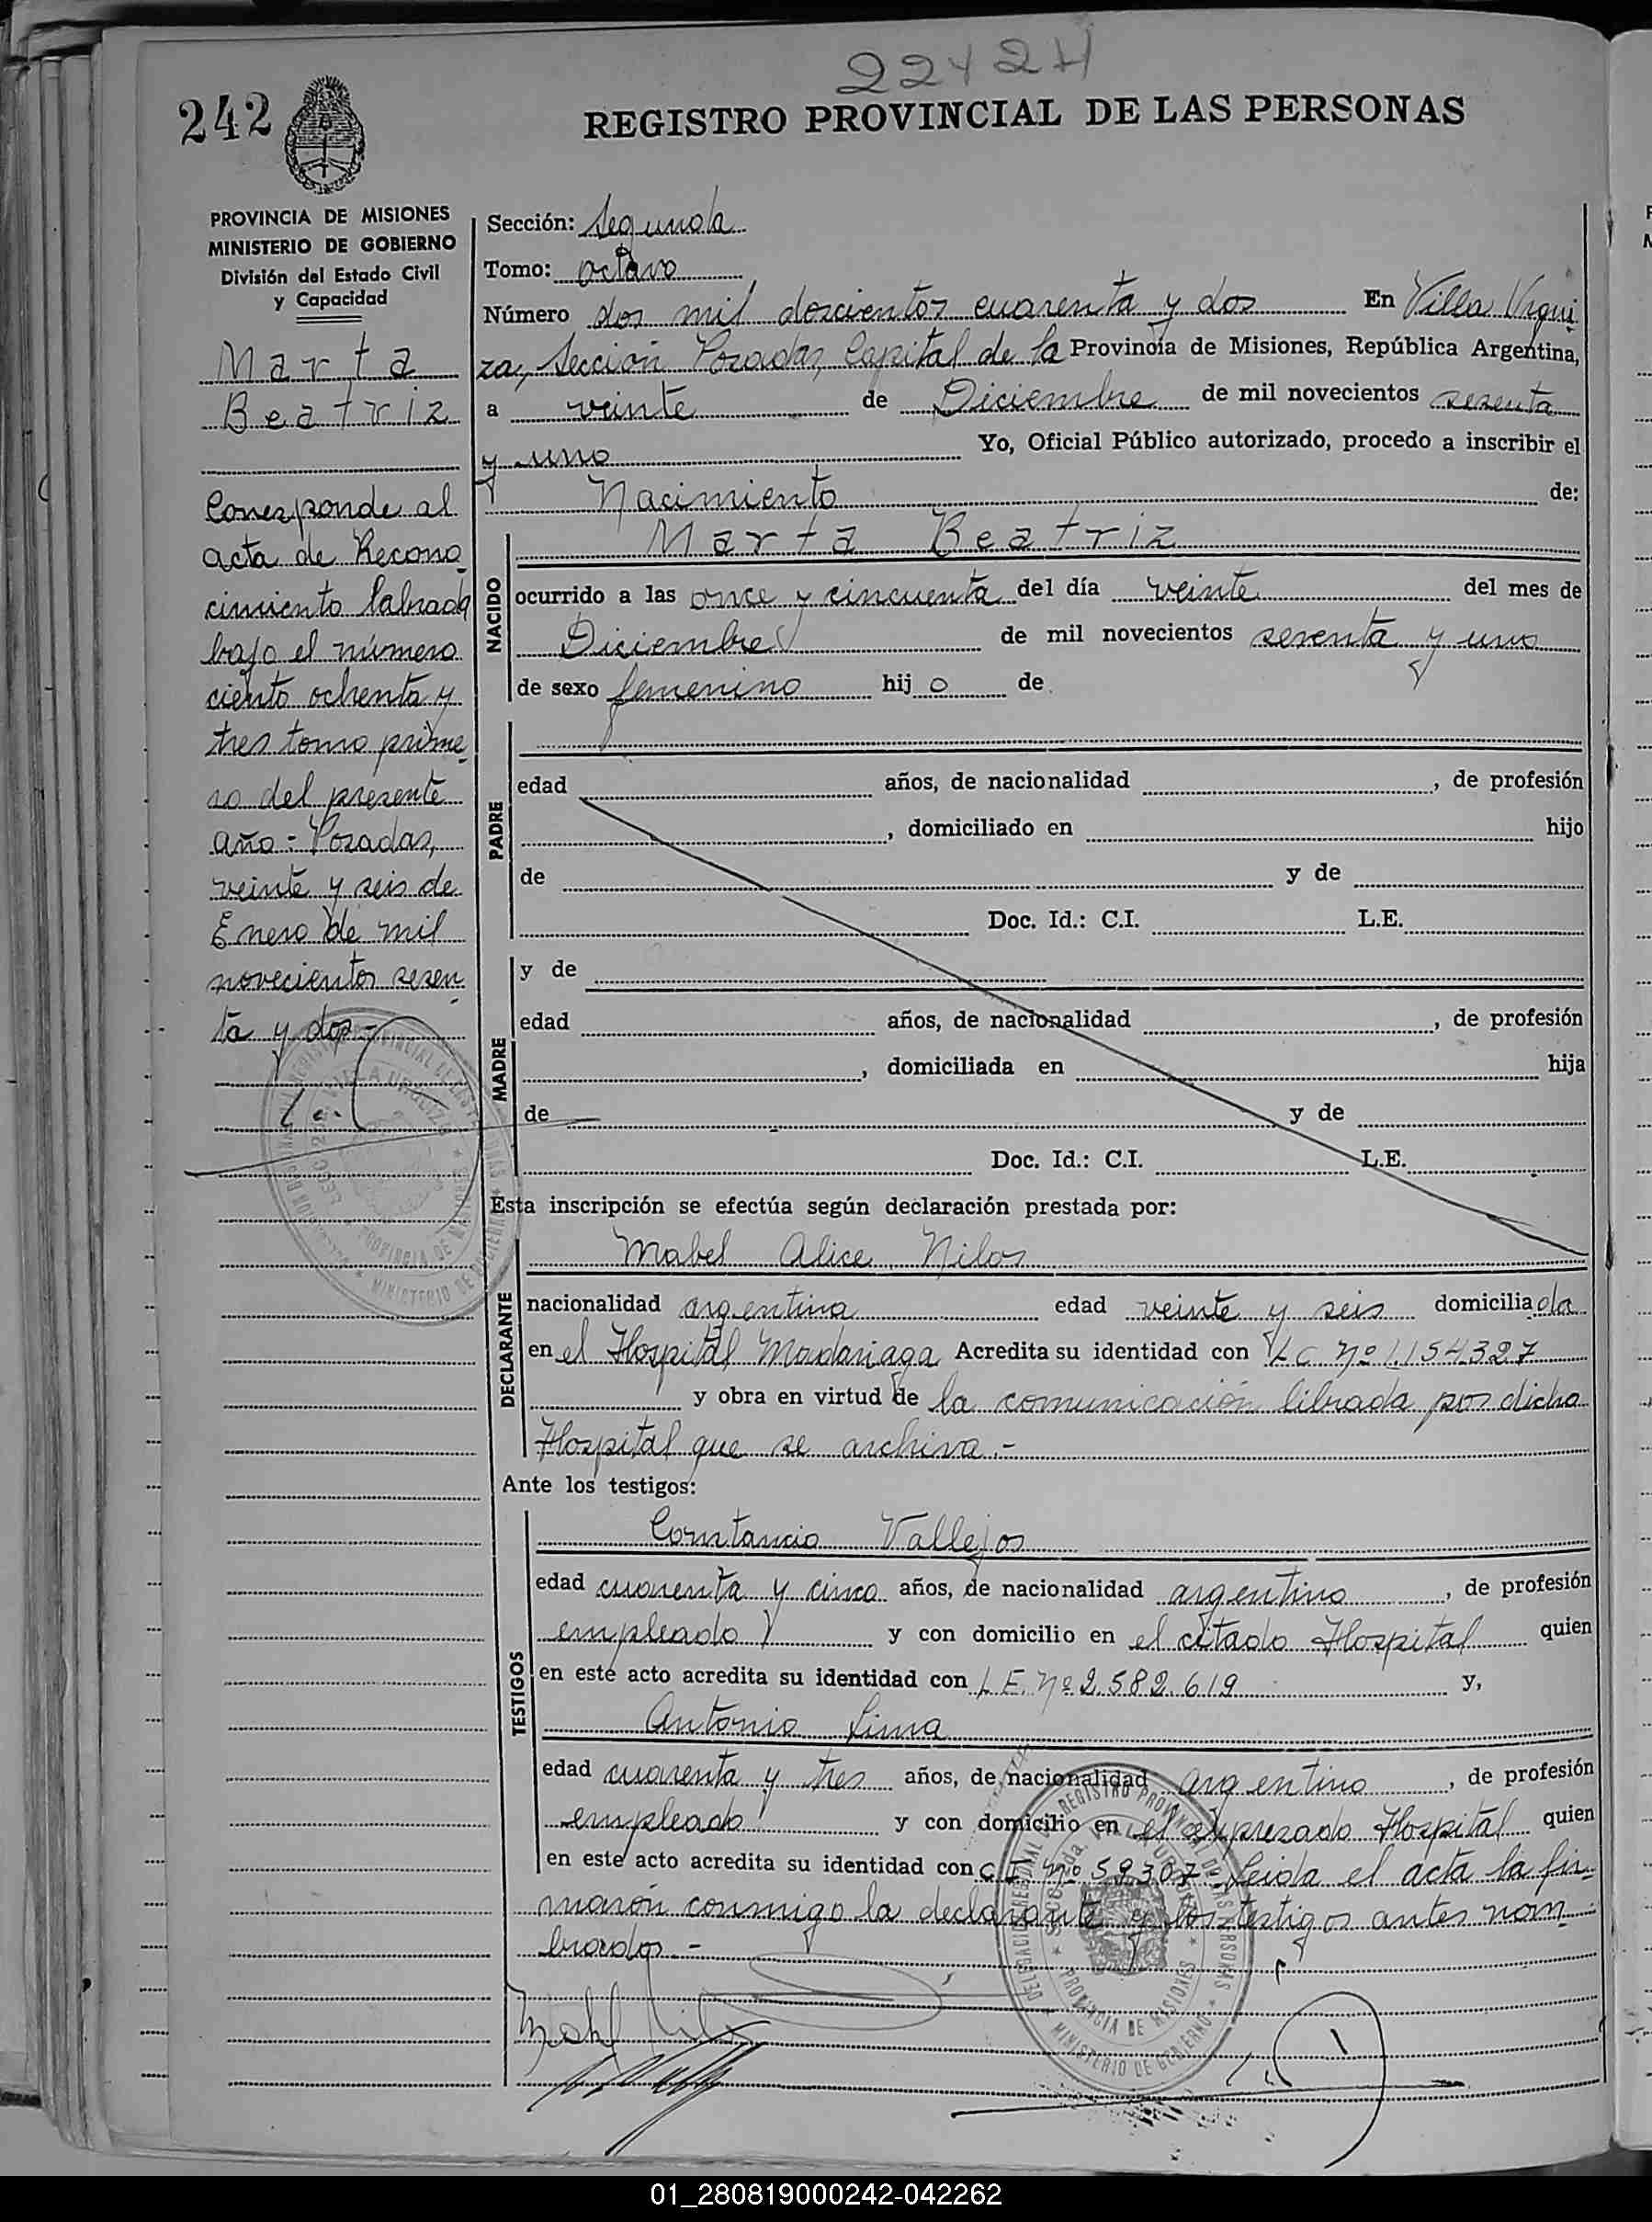 242
REGISTRO PROVINCIAL DE LAS PERSONAS
PROVINCIA DE MISIONES
MINISTERIO DE GOBIERNO
División del Estado Civil
y Capacidad
Marta
Beatriz
Corresponde al
acta de Recono
cimiento labrada
bajo el número
ciento ochenta y
tres tomo prime
ro del presente
año:- Posadas,
veinte y seis de
Enero de mil
novecientos sesen
ta y dos.-
Sección: Segunda
Tomo: octavo
Número dos mil doscientos cuarenta y dos En Villa Urqui
za, Sección Posadas, Capital de la Provincia de Misiones, República Argentina,
a veinte de Diciembre de mil novecientos sesenta
y uno Yo, Oficial Público autorizado, procedo a inscribir el
Nacimiento de:
Marta Beatriz
NACIDO
ocurrido a las once y cincuenta del día veinte del mes de
Diciembre de mil novecientos sesenta y uno
de sexo femenino hij o de
PADRE
edad años, de nacionalidad , de profesión
, domiciliado en hijo
de y de
Doc. Id.: C.I. L.E.
y de
MADRE
edad años, de nacionalidad , de profesión
, domiciliada en hija
de y de
Doc. Id.: C.I. L.E.
Esta inscripción se efectúa según declaración prestada por:
Mabel Alice Nilos
DECLARANTE
nacionalidad argentina edad veinte y seis domicilia da
en el Hospital Madariaga Acredita su identidad con LC Nº 1.154.327
y obra en virtud de la comunicación librada por dicho
Hospital que se archiva.-
Ante los testigos:
Constancio Vallejos
TESTIGOS
edad cuarenta y cinco años, de nacionalidad argentino , de profesión
empleado y con domicilio en el citado Hospital quien
en este acto acredita su identidad con L E. Nº 2.582.619 y,
Antonio Lima
edad cuarenta y tres años, de nacionalidad argentino , de profesión
empleado y con domicilio en el expresado Hospital quien
en este acto acredita su identidad con C I Nº 59307- Leida el acta la fir
maron conmigo la declarante y los testigos antes nom
brados.-
01_280819000242-042262